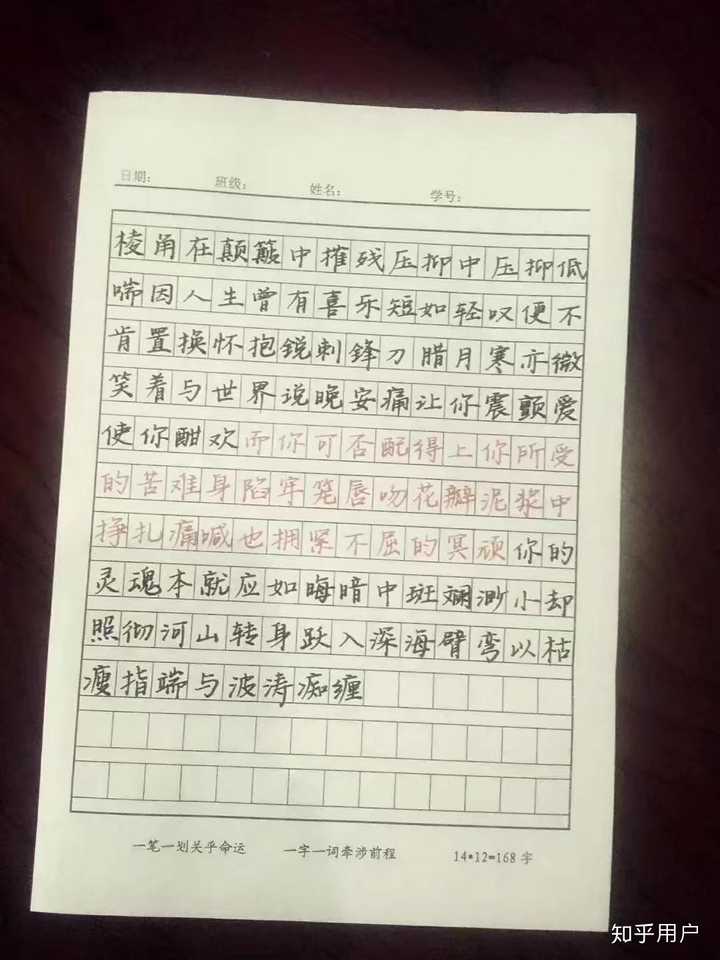 日期： 班级： 姓名： 学号：
棱角在颠簸中摧残压抑中压抑低
喘因人生曾有喜乐短如轻叹便不
肯置换怀抱锐刺锋刀腊月寒亦微
笑着与世界说晚安痛让你震颤爱
使你酣欢而你可否配得上你所受
的苦难身陷牢笼唇吻花瓣泥浆中
挣扎痛喊也拥紧不屈的冥顽你的
灵魂本就应如晦暗中斑斓渺小却
照彻河山转身跃入深海臂弯以枯
瘦指端与波涛痴缠
一笔一划关乎命运 一字一词牵涉前程 14*12=168字
知乎用户